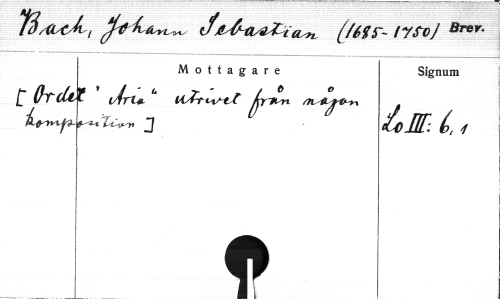 Bach, Johann Sebastian (1685-1750) Brev.
Mottagare
Signum
[Ordet "Aria" utrivet från någon
komposition]
Lo III: 6, 1